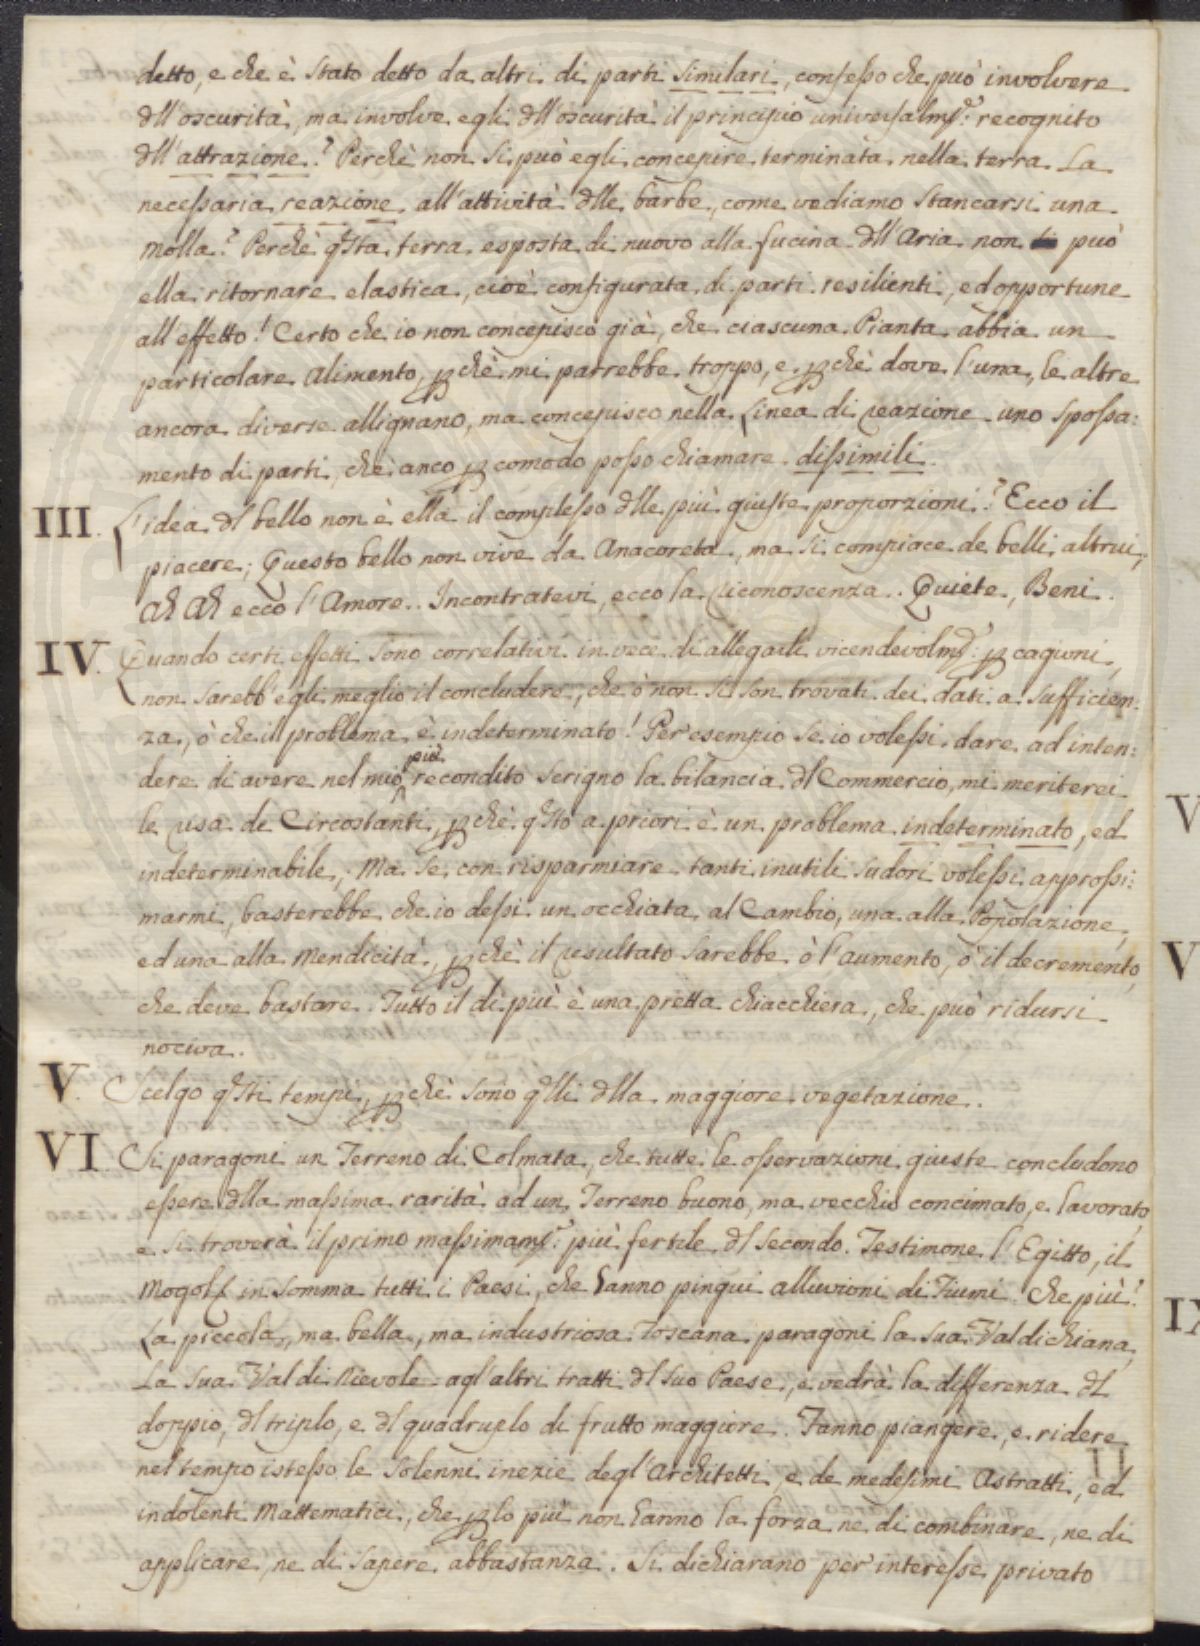 detto, e che è stato detto da altri di parti similari, confesso che può involvere
dll'oscurità, ma involve egli dll'oscurità il principio universalmẽ: recognito
dll'attrazione? Perchè non si può egli concepire terminata nella terra La
necessaria reazione all'attività dlle barbe, come vediamo stancarsi una
molla? Perchè qsta terra esposta di nuovo alla fucina dll'Aria non può
ella ritornare elastica, cioè configurata di parti resilienti, ed opportune
all'effetto! Certo che io non concepisco già, che ciascuna Pianta abbia un
particolare alimento, ꝑchè mi parrebbe troppo, e ꝑchè dove l'una, le altre
ancora diverse allignano, ma concepisco nella Linea di reazione uno spossa:
mento di parti, che anco ꝑ comodo posso chiamare dissimili.
III. L'idea dl bello non è ella il complesso dlle più giuste proporzioni? Ecco il
piacere; Questo bello non vive da Anacoreta, ma si compiace de belli altrui,
Ah Ah ecco l'Amore.. Incontratevi, ecco la riconoscenza.. Quiete, Beni.
IV. Quando certi effetti sono correlativi in vece di allegarli vicendevolmẽ: ꝑ cagioni,
non sarebb'egli meglio il concludere, che ò non si son trovati dei dati a sufficien:
za, ò che il problema è indeterminato! Per esempio se io volessi dare ad inten:
dere di avere nel mio più recondito scrigno la bilancia dl Commercio, mi meriterei
le risa de Circostanti, ꝑchè qsto a priori è un problema indeterminato, ed
indeterminabile, Ma se con risparmiare tanti inutili sudori volessi approssi:
marmi, basterebbe che io dessi un occhiata al Cambio, una alla Popolazione,
ed una alla mendicità, ꝑchè il resultato sarebbe ò l'aumento, ò il decremento,
che deve bastare. Tutto il di più è una pretta chiacchiera, che può ridursi
nociva.
V. Scelgo qsti tempi, ꝑchè sono qlli dlla maggiore vegetazione.
VI Si paragoni un Terreno di Colmata, che tutte le osservazioni giuste concludono
essere dlla massima rarità ad un Terreno buono, ma vecchio concimato, e lavorato,
e si troverà il primo massimamẽ: più fertile dl secondo. Testimone l'Egitto, il
Mogoll in somma tutti i Paesi, che hanno pingui alluvioni di Fiumi. Che più!
La piccola, ma bella, ma industriosa Toscana paragoni la sua Valdichiana,
La sua Val di Nievole agl'altri tratti dl suo Paese, e vedrà la differenza dl
doppio, dl triplo, e dl quadruplo di frutto maggiore. Fanno piangere, e ridere
nel tempo istesso le solenni inezie degl'Architetti, e de medesimi Astratti, ed
indolenti Mattematici, che ꝑ lo più non hanno la forza ne di combinare, ne di
applicare, ne di sapere abbastanza. Si dichiarano per interesse privato
V
V
IX